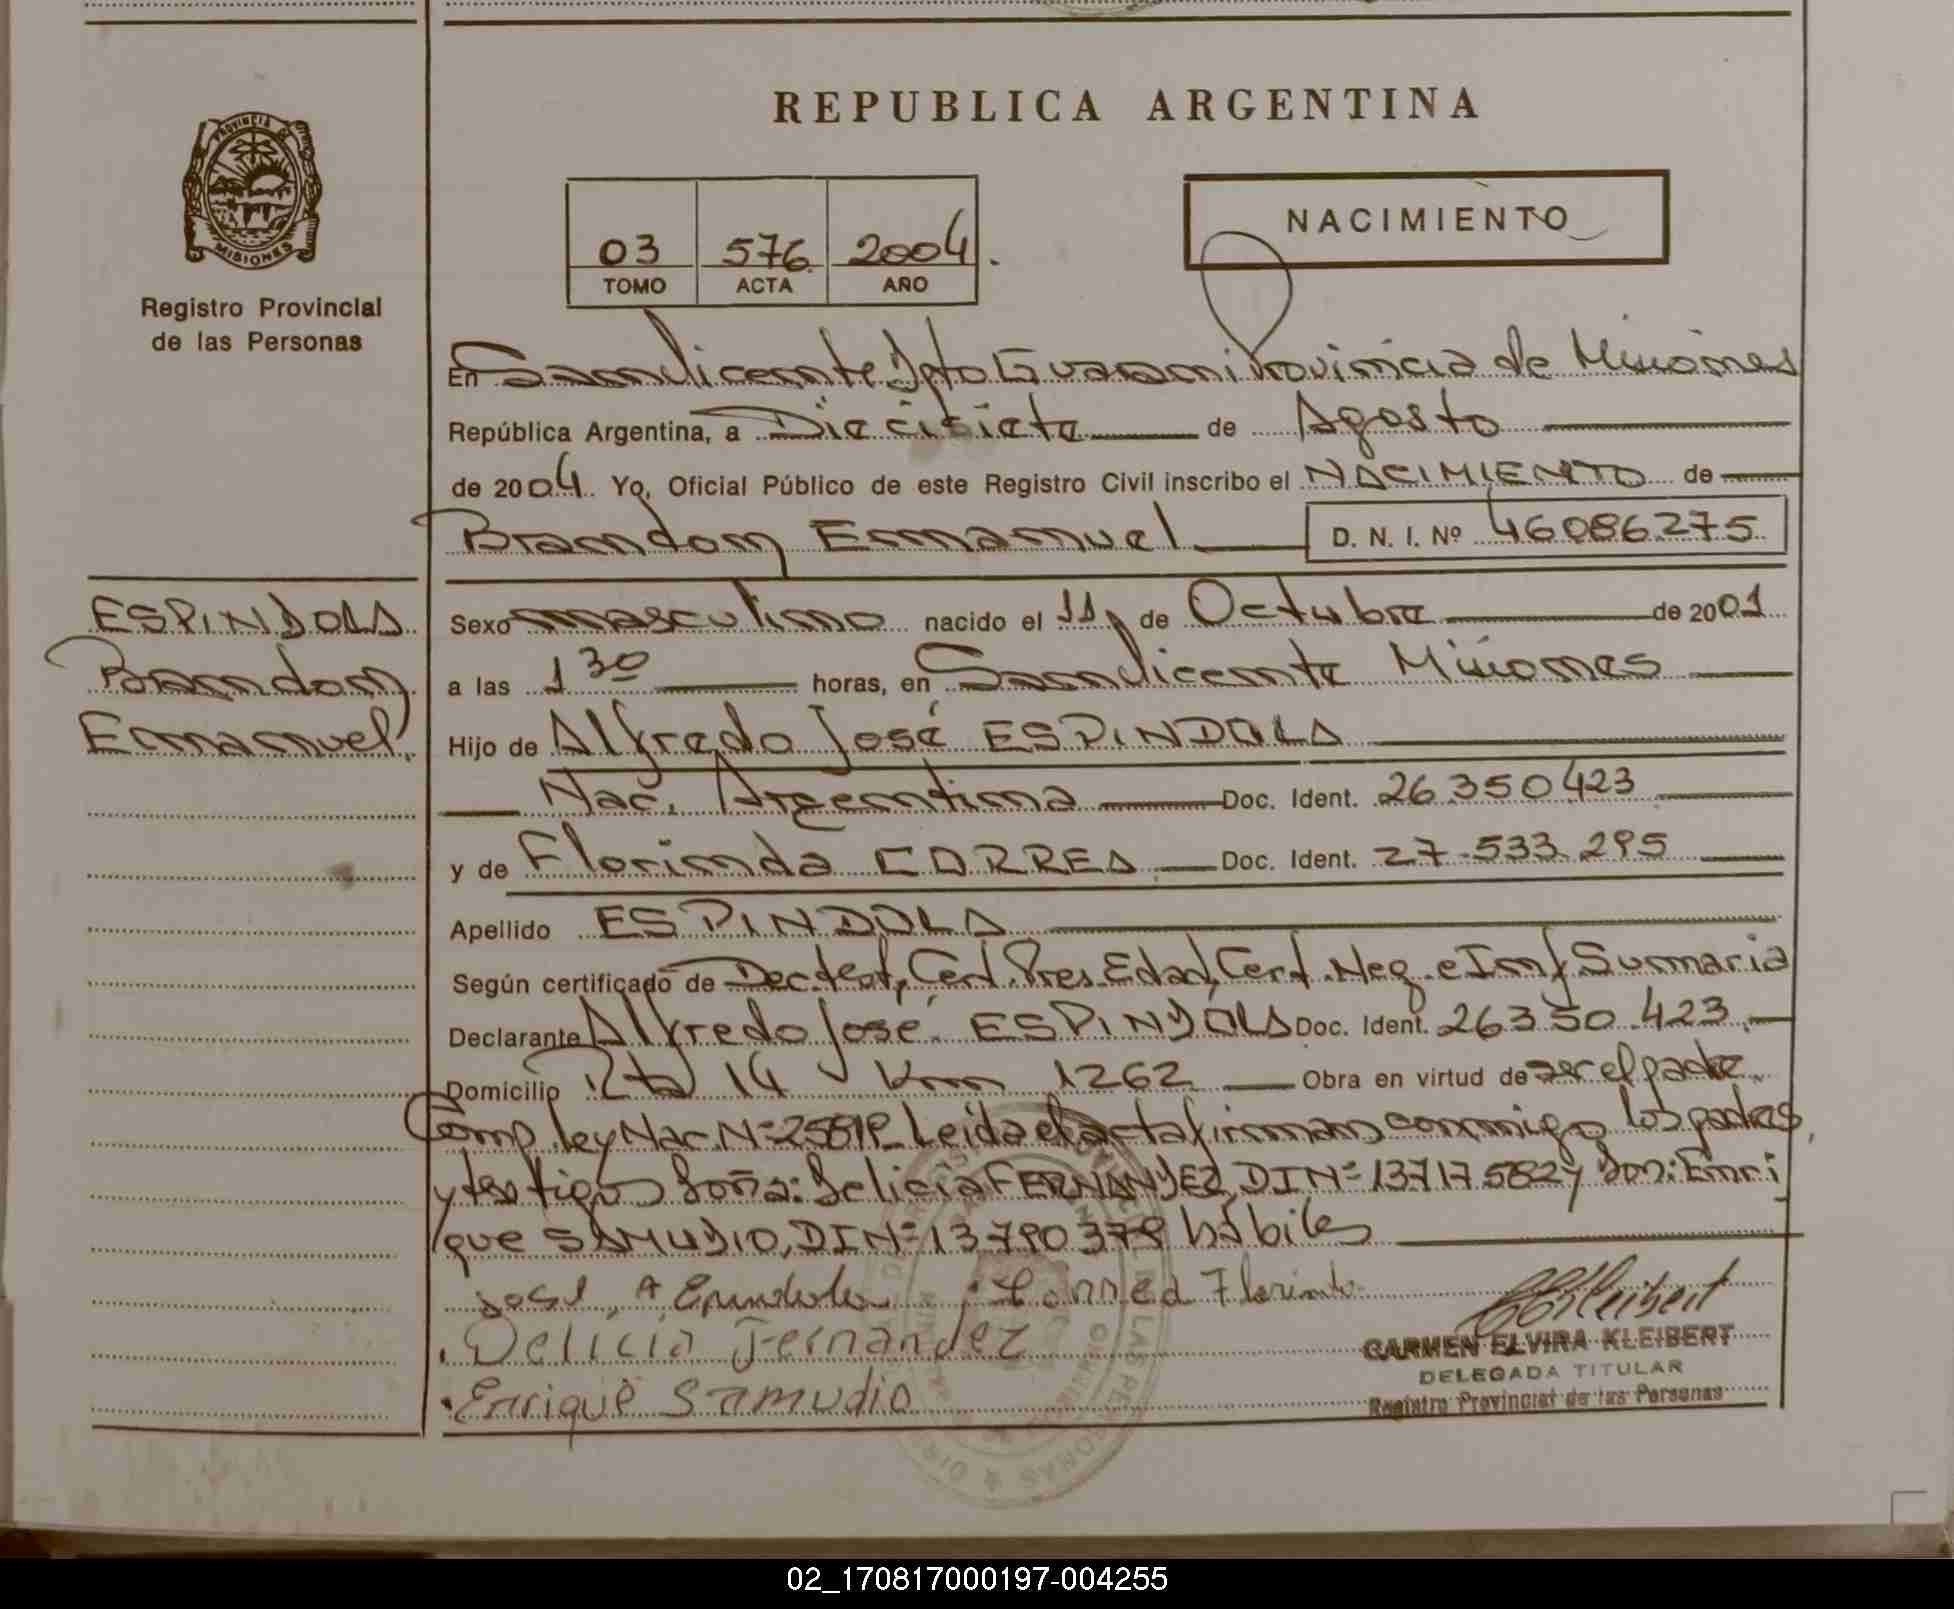 PROVINCIA DE
MISIONES
Registro Provincial
de las Personas
REPUBLICA ARGENTINA
03 576 2004.
TOMO ACTA AÑO
NACIMIENTO
En San Vicente Dpto Guarani Provincia de Misiones
República Argentina, a Diecisiete de Agosto
de 2004. Yo, Oficial Público de este Registro Civil inscribo el NACIMIENTO de
Brandon Emmanuel D. N. I. Nº 46086275
ESPINDOLA
Brandon
Emmanuel
Sexo masculino nacido el 11 de Octubre de 2001
a las 1 30 horas, en San Vicente Misiones
Hijo de Alfredo José ESPINDOLA
Nac. Argentina Doc. Ident. 26.350.423
y de Florinda CORREA Doc. Ident. 27.533.295
Apellido ESPINDOLA
Según certificado de Dec. test, Cert. Pres. Edad, Cert. Neg. e Inf Sumaria
Declarante Alfredo José ESPINDOLA Doc. Ident. 26350.423
Domicilio Rta 14 Km 1262 Obra en virtud de ser el padre
Comp. ley Nac. Nº 25819. Leida el acta firman conmigo los padres,
y testigos Doña: Delicia FERNANDEZ, DI Nº 13717582 y Don: Enri
que SAMUDIO, DI Nº 13790379 hábiles
José, A Espindola Correa Florinda
Delicia Fernandez
Enrique Samudio
CARMEN ELVIRA KLEIBERT
DELEGADA TITULAR
Registro Provincial de las Personas
02_170817000197-004255